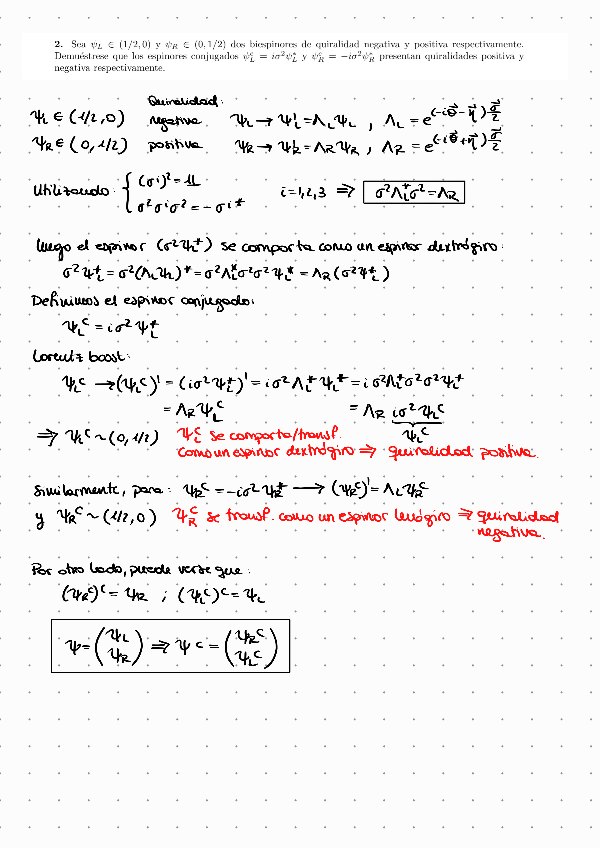 2. Sea ψ_L ∈ (1/2, 0) y ψ_R ∈ (0, 1/2) dos biespinores de quiralidad negativa y positiva respectivamente.
Demuéstrese que los espinores conjugados ψ_L^c = iσ²ψ_L^* y ψ_R^c = −iσ²ψ_R^* presentan quiralidades positiva y
negativa respectivamente.
Quiralidad:
ψ_L ∈ (1/2, 0) negativa ψ_L → ψ_L' = Λ_L ψ_L , Λ_L = e^{(-i\vec{θ} - \vec{η}) \frac{\vec{σ}}{2}}
ψ_R ∈ (0, 1/2) positiva ψ_R → ψ_R' = Λ_R ψ_R , Λ_R = e^{(-i\vec{θ} + \vec{η}) \frac{\vec{σ}}{2}}
Utilizando: { (σ^i)² = 𝟙
σ²σ^iσ² = −σ^{i*} i = 1,2,3 ⇒ σ²Λ_L^*σ² = Λ_R
Luego el espinor (σ²ψ_L^*) se comporta como un espinor dextrógiro:
σ²ψ_L^* = σ²(Λ_Lψ_L)^* = σ²Λ_L^*σ²σ²ψ_L^* = Λ_R(σ²ψ_L^*)
Definimos el espinor conjugado:
ψ_L^c = iσ²ψ_L^*
Lorentz boost:
ψ_L^c → (ψ_L^c)' = (iσ²ψ_L^*)' = iσ²Λ_L^*ψ_L^* = iσ²Λ_L^*σ²σ²ψ_L^*
= Λ_Rψ_L^c = Λ_R iσ²ψ_L^c
ψ_L^c
⇒ ψ_L^c ~ (0, 1/2) ψ_L^c se comporta/transf.
como un espinor dextrógiro ⇒ quiralidad positiva.
Similarmente, para: ψ_R^c = −iσ²ψ_R^* ⟶ (ψ_R^c)' = Λ_Lψ_R^c
y ψ_R^c ~ (1/2, 0) ψ_R^c se transf. como un espinor levógiro ⇒ quiralidad
negativa.
Por otro lado, puede verse que:
(ψ_R^c)^c = ψ_R ; (ψ_L^c)^c = ψ_L
ψ = \begin{pmatrix} ψ_L \\ ψ_R \end{pmatrix} ⇒ ψ^c = \begin{pmatrix} ψ_R^c \\ ψ_L^c \end{pmatrix}